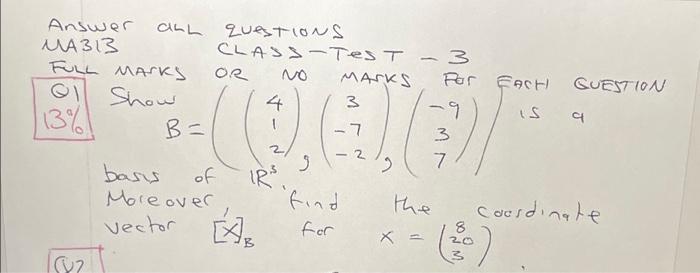 Answer ALL QUESTIONS
MA313 CLASS-TEST-3
FULL MARKS OR NO MARKS FOR EACH QUESTION
Q1 13% Show B = ( (4 1 2), (3 -7 -2), (-9 3 7) ) is a
basis of ℝ³.
Moreover, find the coordinate
vector [x]_B for x = (8 20 3).
Q2